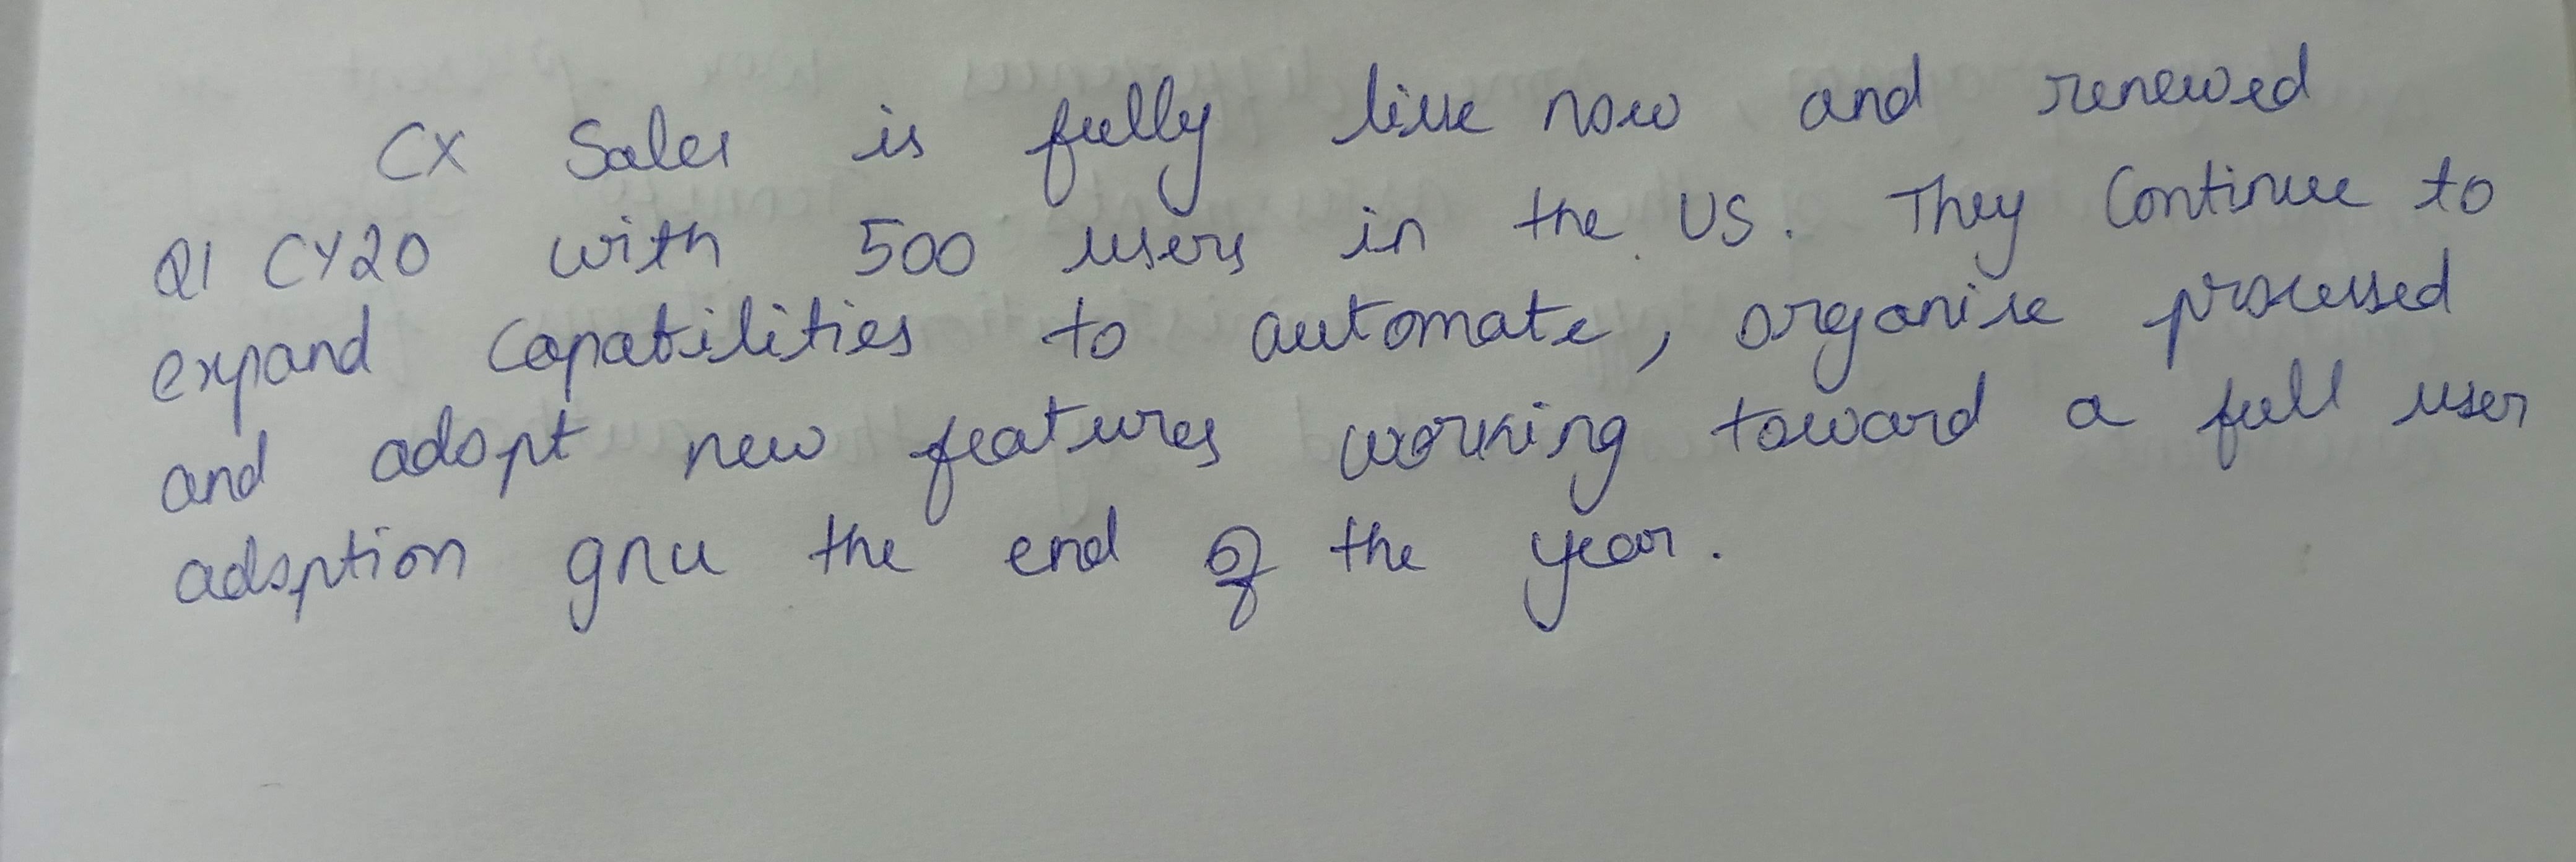 CX Sales is fully live now and renewed
Q1 CY20 with 500 users in the US. They Continue to
expand Capabilities to automate, organise processed
and adopt new features working toward a full user
adoption gnu the end of the year.